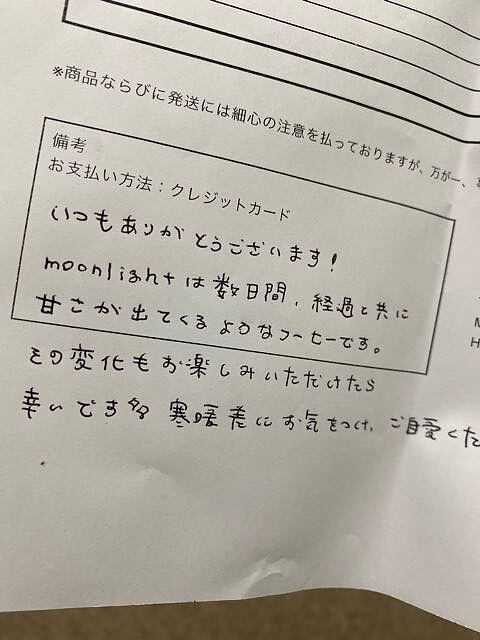 ※商品ならびに発送には細心の注意を払っておりますが、万が一、
備考
お支払い方法：クレジットカード
いつもありがとうございます！
moonlightは数日間、経過と共に
甘さが出てくるようなコーヒーです。
その変化もお楽しみいただけたら
幸いです 寒暖差にお気をつけ、ご自愛くた
M
H